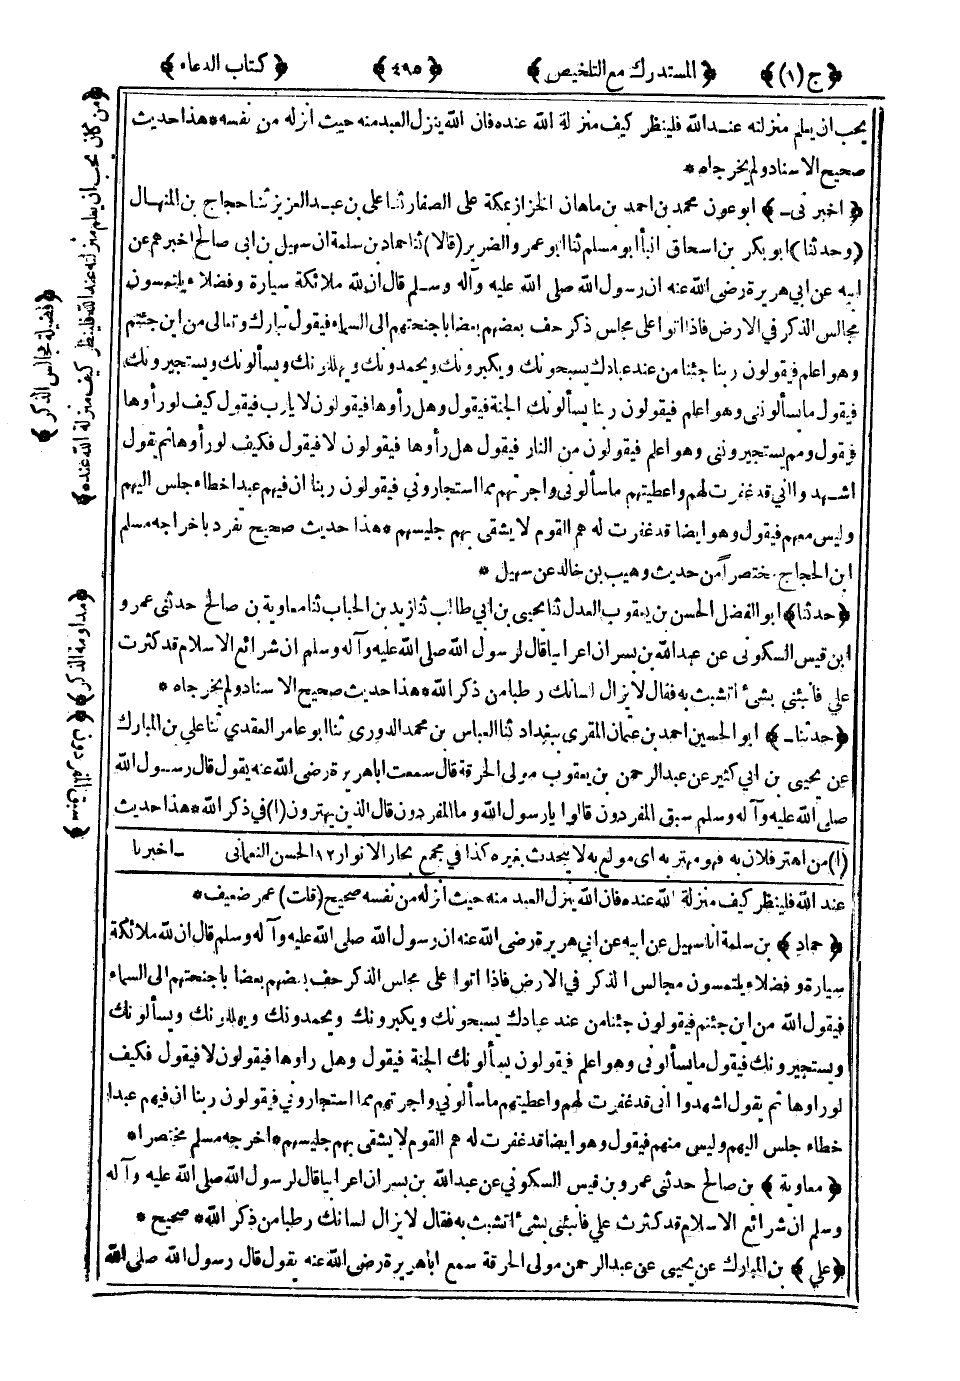 ﴿ ج (١) ﴾ ﴿ المستدرك مع التلخيص ﴾ ﴿ ٤٩٥ ﴾ ﴿ كتاب الدعاء ﴾
يحب ان يعلم منزلته عند الله فلينظر كيف منزلة الله عنده فان الله ينزل العبد منه حيث انزله من نفسه * هذا حديث
صحيح الاسناد ولم يخرجاه *
﴿ اخبرني ﴾ ابو عون محمد بن احمد بن ماهان الخزاز بمكة على الصفا ر ثنا على بن عبد العزيز ثنا حجاج بن المنهال
(وحدثنا) ابو بكر بن اسحاق انبأ ابو مسلم ثنا ابو عمرو الضرير (قالا) ثنا حماد بن سلمة ان سهيل بن ابى صالح اخبرهم عن
ابيه عن ابي هريرة رضى الله عنه ان رسول الله صلى الله عليه وآله وسلم قال ان لله ملائكة سيارة وفضلاء يلتمسون
مجالس الذكر في الارض فاذا اتوا على مجلس ذكر حف بعضهم بعضا باجنحتهم الى السماء فيقول تبارك وتعالى من اين جئتم
وهو اعلم فيقولون ربنا جئنا من عند عبادك يسبحونك ويكبرونك ويحمدونك ويهللونك ويسألونك ويستجيرونك
فيقول ما يسألونى وهو اعلم فيقولون ربنا يسألونك الجنة فيقول وهل رأوها فيقولون لا يارب فيقول كيف لو رأوها
فيقول ومم يستجيرونى وهو اعلم فيقولون من النار فيقول هل رأوها فيقولون لا فيقول فكيف لو رأوها ثم يقول
اشهدوا اني قد غفرت لهم واعطيتهم ما سألونى واجرتهم مما استجاروني فيقولون ربنا ان فيهم عبدا خطاء جلس اليهم
وليس معهم فيقول وهو ايضا قد غفرت له هم القوم لا يشقى بهم جليسهم * هذا حديث صحيح تفرد باخراجه مسلم
ابن الحجاج مختصراً من حديث وهيب بن خالد عن سهيل *
﴿ حدثنا ﴾ ابو الفضل الحسن بن يعقوب العدل ثنا يحيى بن ابي طالب ثنا زيد بن الحباب ثنا معاوية بن صالح حدثنى عمرو
ابن قيس السكونى عن عبد الله بن بسر ان اعرابيا قال لرسول الله صلى الله عليه وآله وسلم ان شرائع الاسلام قد كثرت
علي فانبئنى بشئ اتشبث به فقال لا يزال لسانك رطبا من ذكر الله * هذا حديث صحيح الاسناد ولم يخرجاه *
﴿ حدثنا ﴾ ابو الحسين احمد بن عثمان المقرى ببغداد ثنا العباس بن محمد الدورى ثنا ابو عامر العقدي ثنا علي بن المبارك
عن يحيى بن ابي كثير عن عبد الرحمن بن يعقوب مولى الحرقة قال سمعت اباهريرة رضى الله عنه يقول قال رسول الله
صلى الله عليه وآله وسلم سبق المفردون قالوا يارسول الله وما المفردون قال الذين يهترون (١) في ذكر الله * هذا حديث
(١) من اهتر فلان به فهو مهتر به اى مولع به لا يتحدث بغيره كذا في مجمع بحار الانوار ١٢ الحسن النعمانى ـ اخبرنا
عند الله فلينظر كيف منزلة الله عنده فان الله ينزل العبد منه حيث انزله من نفسه صحيح (قلت) عمر ضعيف *
﴿ حماد ﴾ بن سلمة انا سهيل عن ابيه عن ابي هريرة رضى الله عنه ان رسول الله صلى الله عليه وآله وسلم قال ان لله ملائكة
سيارة وفضلاء يلتمسون مجالس الذكر في الارض فاذا اتوا على مجالس الذكر حف بعضهم بعضا باجنحتهم الى السماء
فيقول الله من اين جئتم فيقولون جئنا من عند عبادك يسبحونك ويكبرونك ويحمدونك ويهللونك ويسألونك
ويستجيرونك فيقول ما يسألونى وهو اعلم فيقولون يسألونك الجنة فيقول وهل راوها فيقولون لا فيقول فكيف
لو راوها ثم يقول اشهدوا انى قد غفرت لهم واعطيتهم ما سألوني واجرتهم مما استجاروني فيقولون ربنا ان فيهم عبدا
خطاء جلس اليهم وليس منهم فيقول وهو ايضا قد غفرت له هم القوم لا يشقى بهم جليسهم * اخرجه مسلم مختصرا *
﴿ معاوية ﴾ بن صالح حدثنى عمرو بن قيس السكوني عن عبد الله بن بسر ان اعرابيا قال لرسول الله صلى الله عليه وآله
وسلم ان شرائع الاسلام قد كثرت علي فانبئنى بشئ اتشبث به فقال لا يزال لسانك رطبا من ذكر الله * صحيح *
﴿ علي ﴾ بن المبارك عن يحيى عن عبد الرحمن مولى الحرقة سمع اباهريرة رضى الله عنه يقول قال رسول الله صلى الله
﴿ من كان يحب ان يعلم منزلته عند الله فلينظر كيف منزلة الله عنده ﴾
﴿ فضيلة مجالس الذكر ﴾
﴿ مداومة الذكر ﴾
﴿ سبق المفردون ﴾